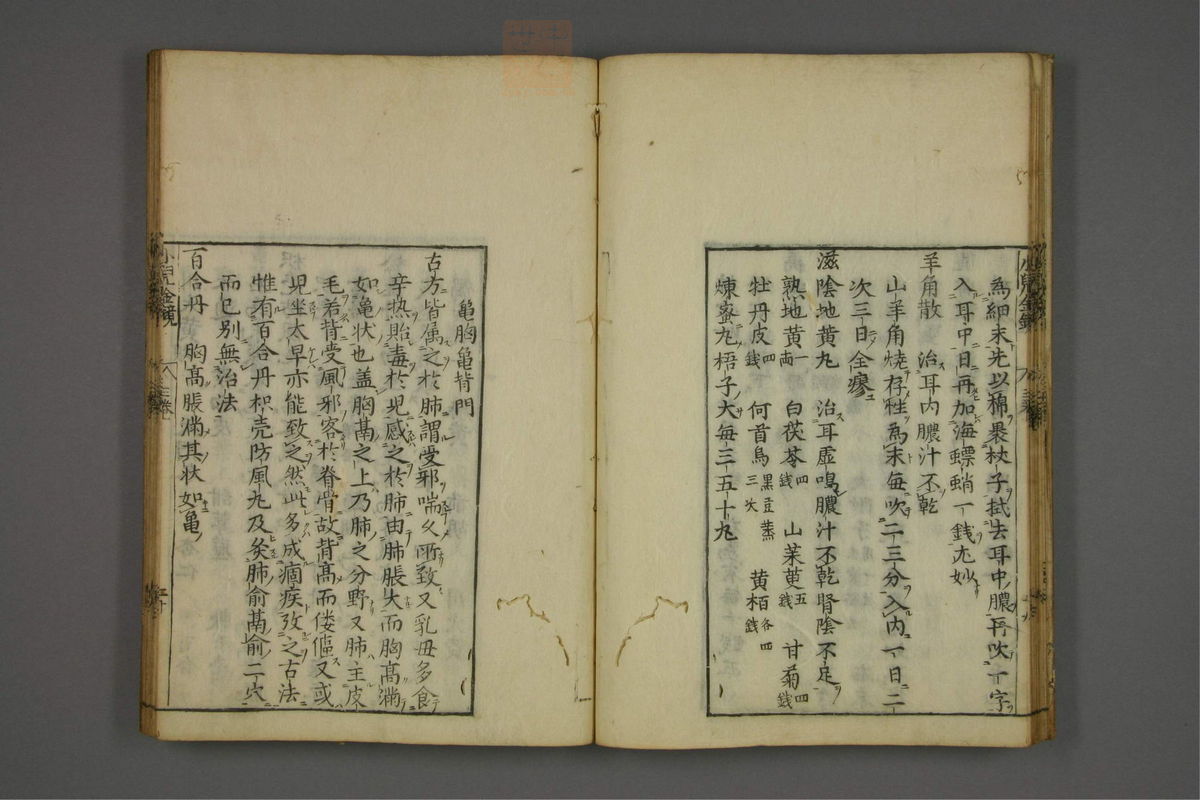 為細末先以綿裹杖子拭去耳中膿再吹一字
入耳中日二再加海螵蛸一錢尤妙
羊角散 治耳内膿汁不乾
山羊角燒存性為末每吹二三分入内一日二
次三日全瘳
滋陰地黄丸 治耳虚鳴膿汁不乾腎陰不足
熟地黄一両 白茯苓四錢 山茱萸五錢 甘菊四錢
牡丹皮四錢 何首烏黒豆蒸三次 黄栢各四錢
煉蜜丸梧子大每三五十丸
亀胸亀背門
古方皆属之於肺謂受邪喘久所致又乳母多食
辛热貽毒於児感之於肺由肺脹大而胸髙満
如亀状也盖胸萵之上乃肺之分野又肺主皮
毛若背受風邪客於脊骨故背髙而偻傴又或
児坐太早亦能致之然此多成痼疾攷之古法
惟有百合丹枳壳防風丸及灸肺俞萵俞二穴
而已别無治法
百合丹 胸髙脹満其状如亀
小兒金鏡